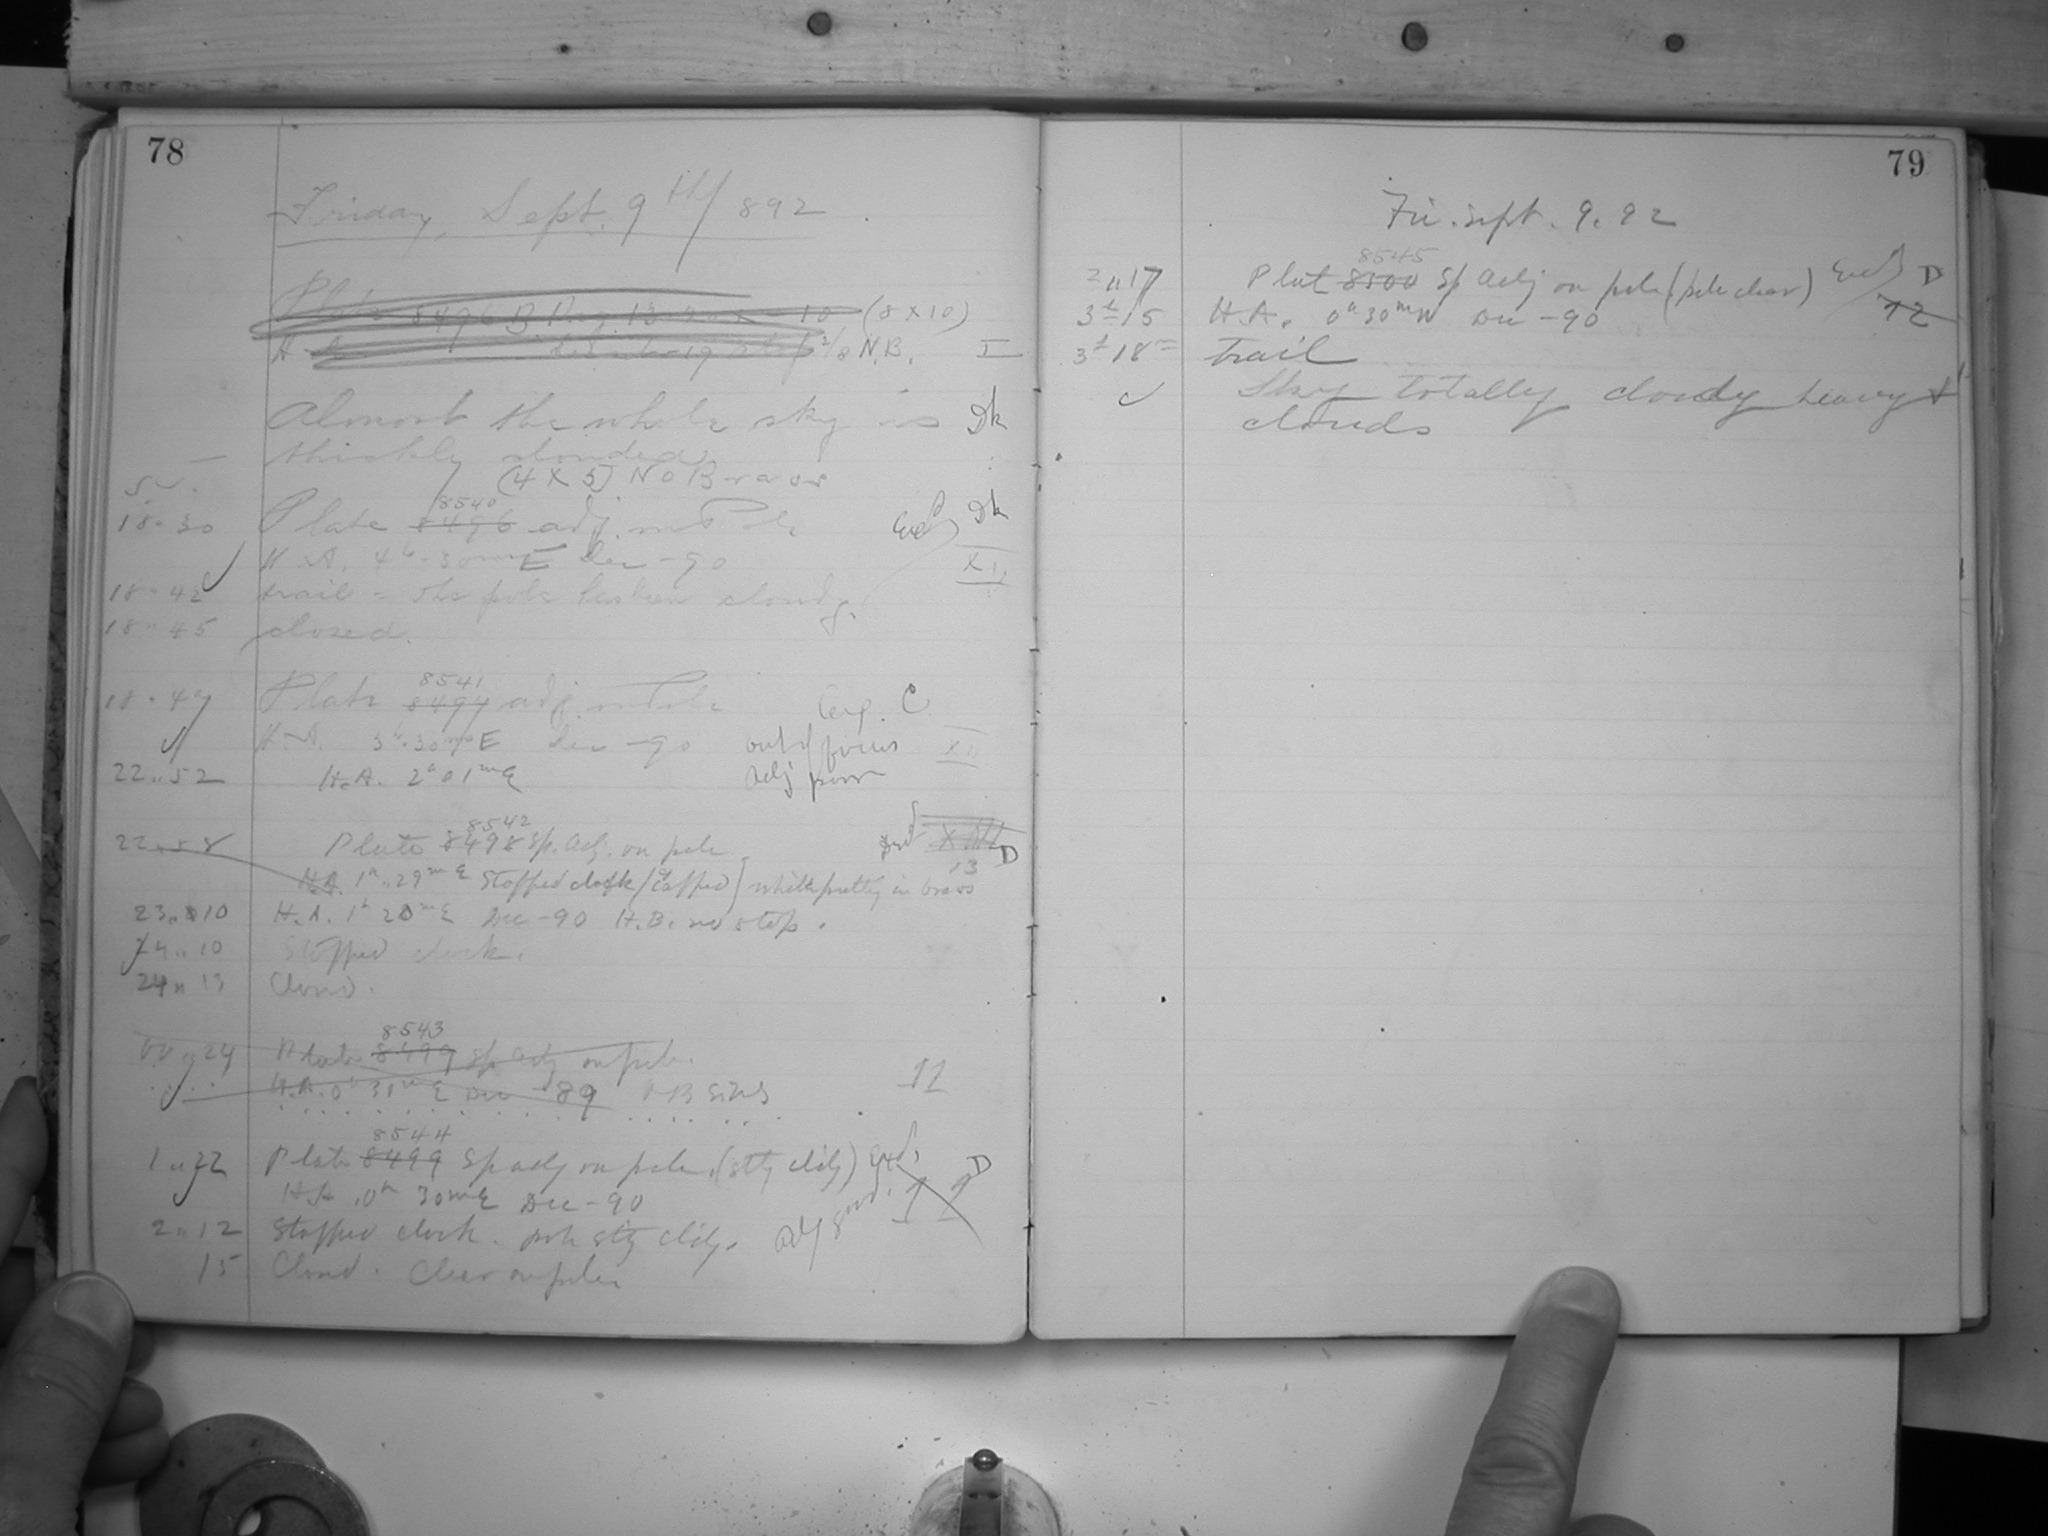 78
Friday, Sept. 9th 1892
Plate 8496 B (8 X 10)
H. A. N.B. I
Almost the whole sky is Dk
thickly clouded
(4 X 5) No Brass
8540
18 30 Plate 8496 adj. on Pole Dk
H. A. 4h 30m E Dec -90
18 42 trail - the pole has been cloudy.
18 45 closed.
8541
18 47 Plate 8497 adj. on Pole C
H. A. 3h 30m E Dec -90 out of focus
22 52 H. A. 2h 01m E adj poor
8542
22 58 Plate 8498 Sp. Adj. on pole D
13
H.A. 1h 29m E Stopped clock (capped) while putting in brass
23 10 H. A. 1h 20m E Dec -90 H. B. no stop.
24 10 Stopped clock.
24 13 Closed.
8543
00 24 Plate 8499 Sp Adj on pole.
H. A. 0h 31m E Dec -89 11
8544
1 22 Plate 8499 Sp adj on pole. (stly cldy) D
H A. 0h 30m E Dec -90 Adj good.
2 12 Stopped clock. pole stly cldy.
15 Closed. Clear on pole
79
Fri. Sept. 9. 92
8545
2 17 Plat 8500 Sp Adj on pole (pole clear) D
12
3h 15 H. A. 0h 30m W Dec -90
3h 18m trail
Sky totally cloudy heavy
clouds